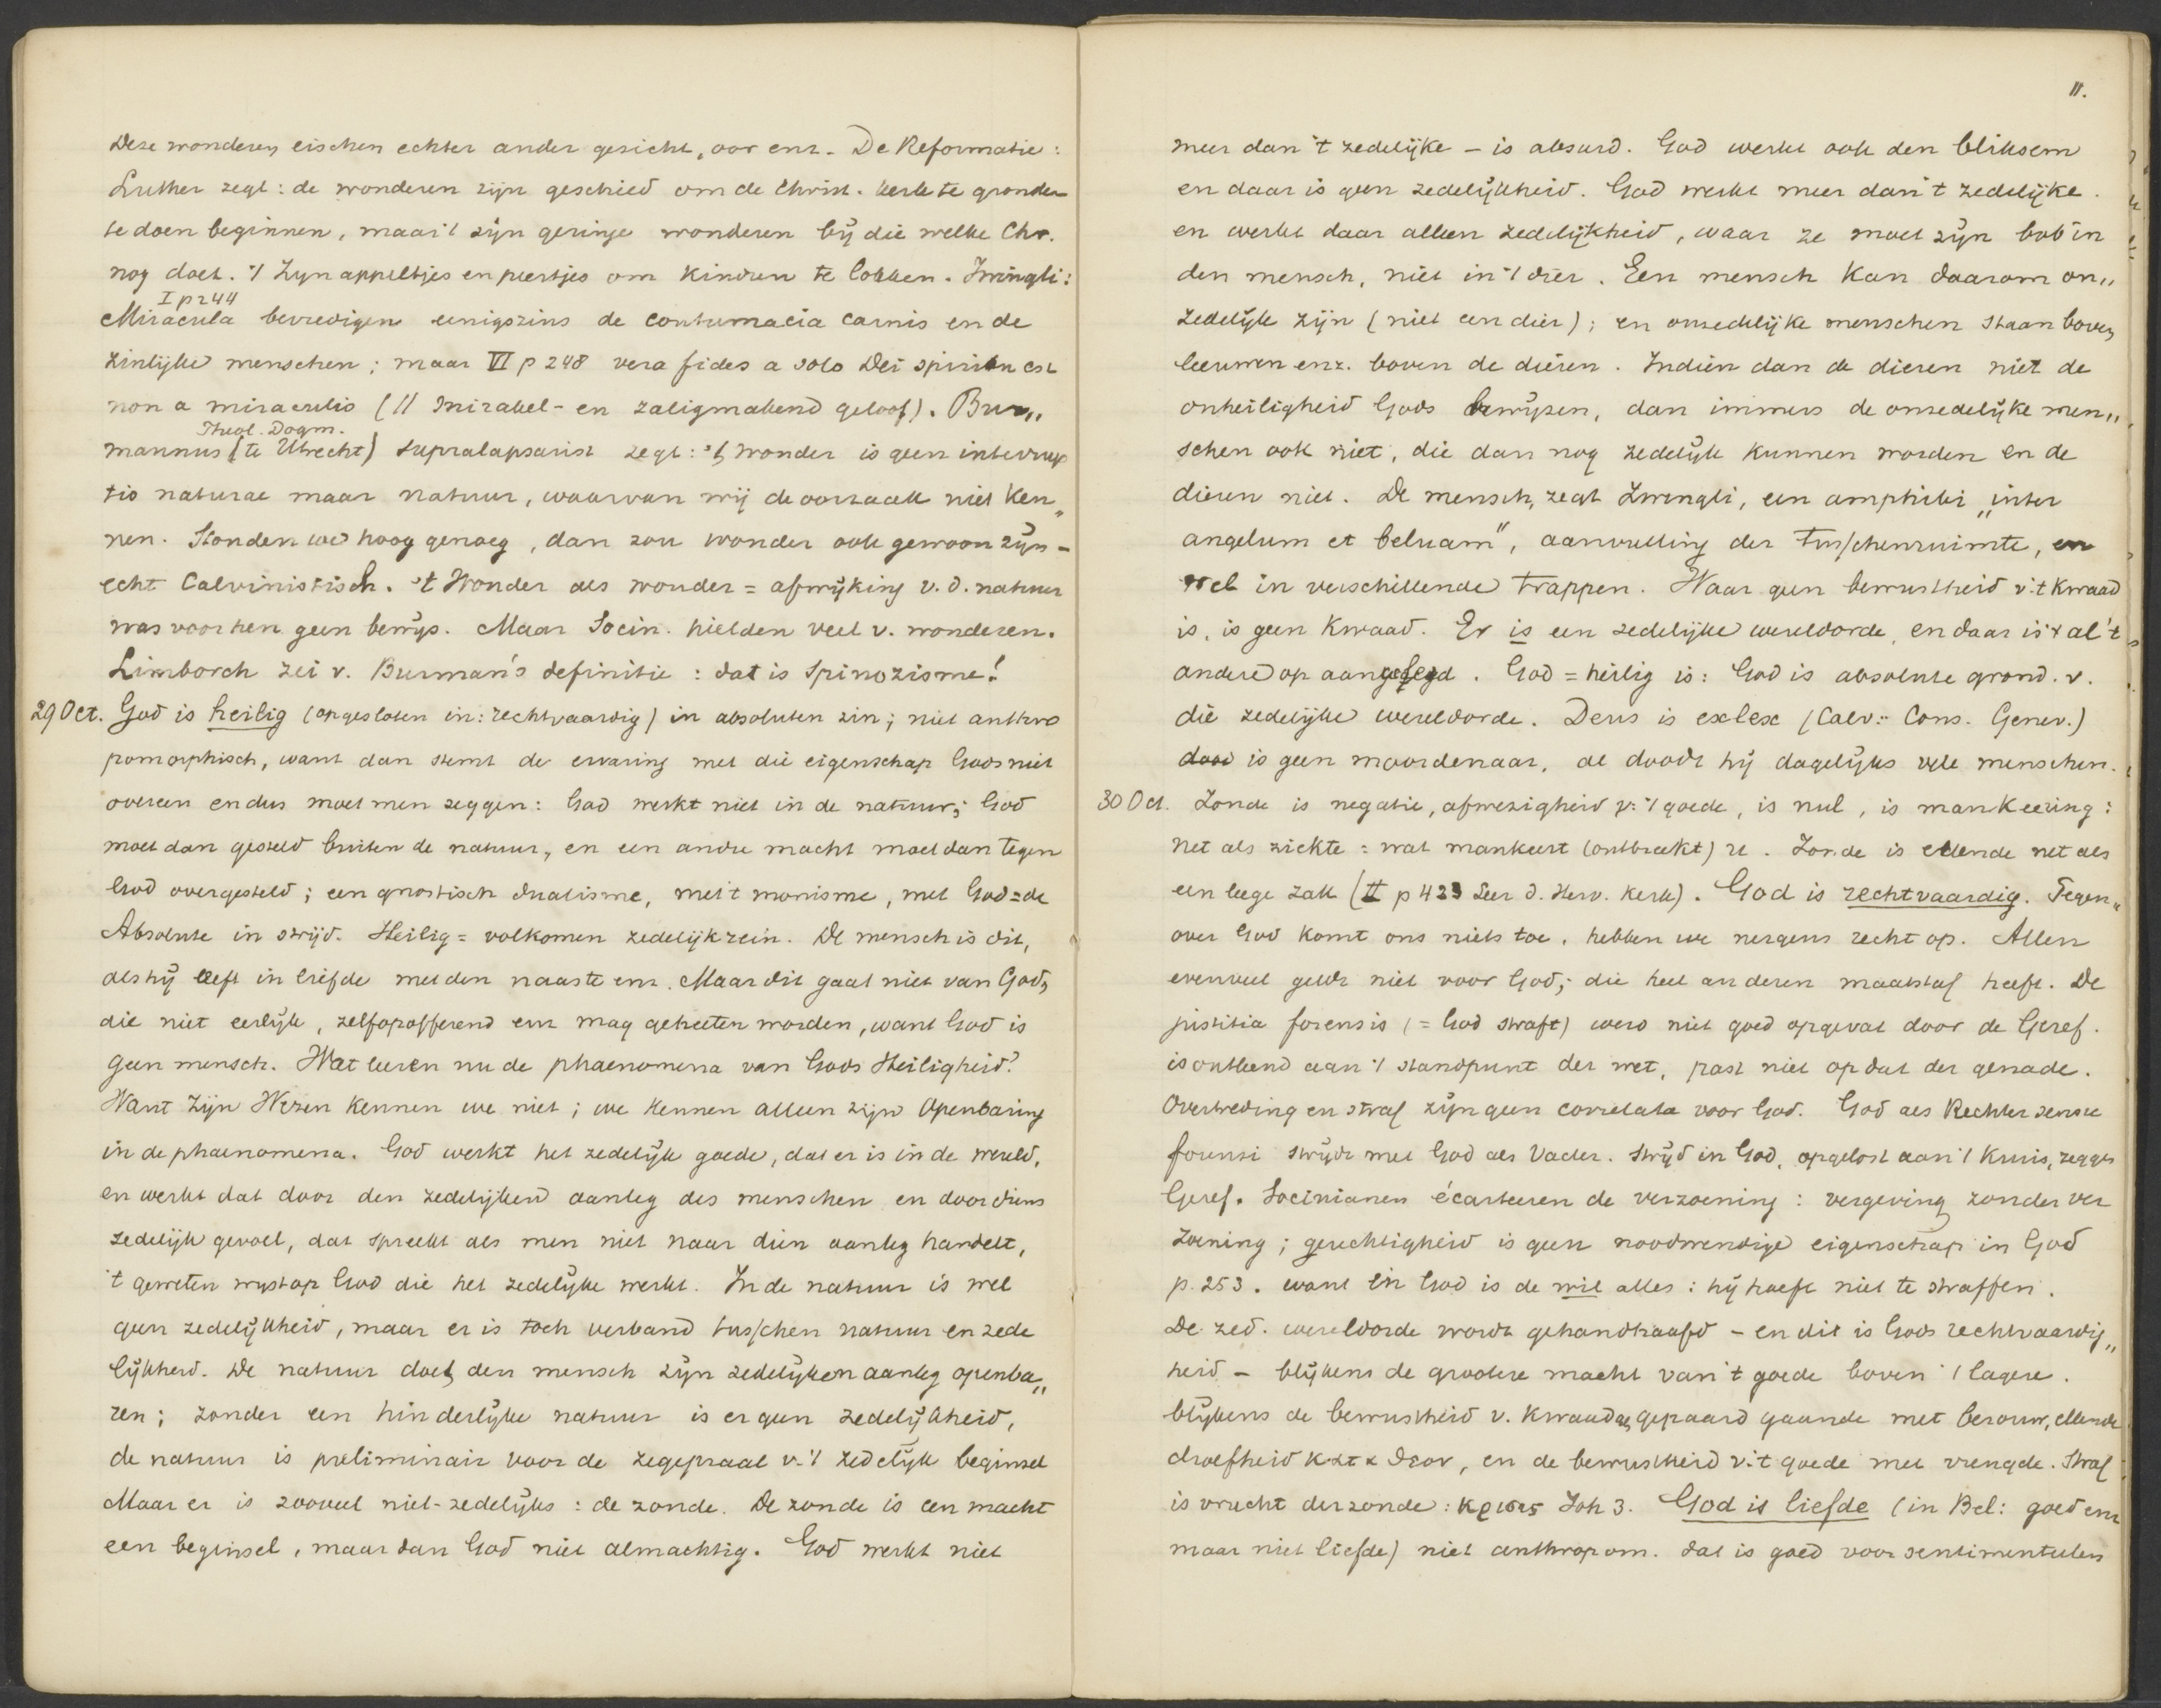 Deze wonderen eischen echter ander gezicht, oor enz. De Reformatie:
Luther zegt: de wonderen zijn geschied om de Christ. kerk te gronden
te doen beginnen, maar 't zijn geringe wonderen bij die welke Chr.
nog doet. 't Zyn appeltjes en peertjes om kinderen te lokken. Zwingli:
I p 244
Miracula bevredigen eenigszins de contumacia carnis en de
zinlijke menschen; maar VI p 248 vera fides a solo Dei spiritu est
non a miraculis (// mirakel- en zaligmakend geloof). Bur„
Theol. Dogm.
mannus (te Utrecht) supralapsarist zegt: 't wonder is geen interrup
tio naturae maar natuur, waarvan wij de oorzaak niet ken„
nen. Stonden we hoog genoeg, dan zou wonder ook gewoon zijn -
echt Calvinistisch. 't Wonder als wonder = afwijking v. d. natuur
was voor hen geen bewijs. Maar Socin. hielden veel v. wonderen.
Limborch zei v. Burman's definitie: dat is Spinozisme!
29 Oct. God is heilig (opgesloten in: rechtvaardig) in absoluten zin; niet anthro
pomorphisch, want dan stemt de ervaring met die eigenschap Gods niet
overeen en dus moet men zeggen: God werkt niet in de natuur; God
moet dan gesteld buiten de natuur, en een andre macht moet dan tegen
God overgesteld; een gnostisch dualisme, met 't monisme, met God = de
Absolute in strijd. Heilig = volkomen zedelijk rein. De mensch is dit,
als hij leeft in liefde met den naaste enz. Maar dit gaat niet van God,
die niet eerlijk, zelfopofferend enz mag geheeten worden, want God is
geen mensch. Wat leeren nu de phaenomena van Gods Heiligheid?
Want Zijn Wezen kennen we niet; we kennen alleen zijn Openbaring
in de phaenomena. God werkt het zedelijk goede, dat er is in de wereld,
en werkt dat door den zedelijken aanleg des menschen en door diens
zedelijk gevoel, dat spreekt als men niet naar dien aanleg handelt,
't geweten wyst op God die het zedelijke werkt. In de natuur is wel
geen zedelijkheid, maar er is toch verband tusschen natuur en zede
lijkheid. De natuur doet den mensch zijn zedelijken aanleg openba„
ren; zonder een hinderlijke natuur is er geen zedelijkheid,
de natuur is preliminair voor de zegepraal v. 't zedelijk beginsel
Maar er is zooveel niet-zedelijks: de zonde. De zonde is een macht
een beginsel, maar dan God niet almachtig. God werkt niet
11.
meer dan 't zedelijke - is absurd. God werkt ook den bliksem
en daar is geen zedelijkheid. God werkt meer dan 't zedelijke.
en werkt daar alleen zedelijkheid, waar ze moet zijn in
den mensch, niet in 't dier. Een mensch kan daarom on„
zedelijk zijn (niet een dier); en onzedelijke menschen staan boven
leeuwen enz. boven de dieren. Indien dan de dieren niet de
onheiligheid Gods bewijzen, dan immers de onzedelijke men„
schen ook niet, die dan nog zedelijk kunnen worden en de
dieren niet. De mensch, zegt Zwingli, een amphibi „inter
angelum et beluam", aanvulling der tusschenruimte, en
wel in verschillende trappen. Waar geen bewustheid v. 't kwaad
is, is geen kwaad. Er is een zedelijke wereldorde, en daar is al 't
andere op aangelegd. God = heilig is: God is absolute grond v.
die zedelijke wereldorde. Deus is exlex (Calv: Cons. Genev.)
is geen moordenaar, al doodt hij dagelijks vele menschen.
30 Oct. Zonde is negatie, afwezigheid v. 't goede, is nul, is mankeering:
net als ziekte: wat mankeert (ontbreekt) u. Zonde is ellende net als
een leege zak (II p 423 Leer d. Herv. Kerk). God is rechtvaardig. Tegen„
over God komt ons niets toe, hebben we nergens recht op. Allen
evenveel geldt niet voor God, die heel anderen maatstaf heeft. De
justitia forensis (= God straft) werd niet goed opgevat door de Geref.
is ontleend aan 't standpunt der wet, past niet op dat der genade.
Overtreding en straf zijn geen correlata voor God. God als Rechter sensu
forensi strijdt met God als Vader. Strijd in God, opgelost aan 't kruis, zeggen
Geref. Socinianen écarteeren de verzoening: vergeving zonder ver
zoening; gerechtigheid is geen noodwendige eigenschap in God
p. 253. want in God is de wil alles: hij hoeft niet te straffen.
De zed. wereldorde wordt gehandhaafd - en dit is Gods rechtvaardig„
heid - blijkens de grootere macht van 't goede boven 't lagere.
blijkens de bewustheid v. kwaad gepaard gaande met berouw, ellende
droefheid κατα θεον, en de bewustheid v. 't goede met vreugde. Straf
is vrucht der zonde: κρισις Joh 3. God is liefde (in Bel: goed enz
maar niet liefde) niet anthropom. dat is goed voor sentimenteelen